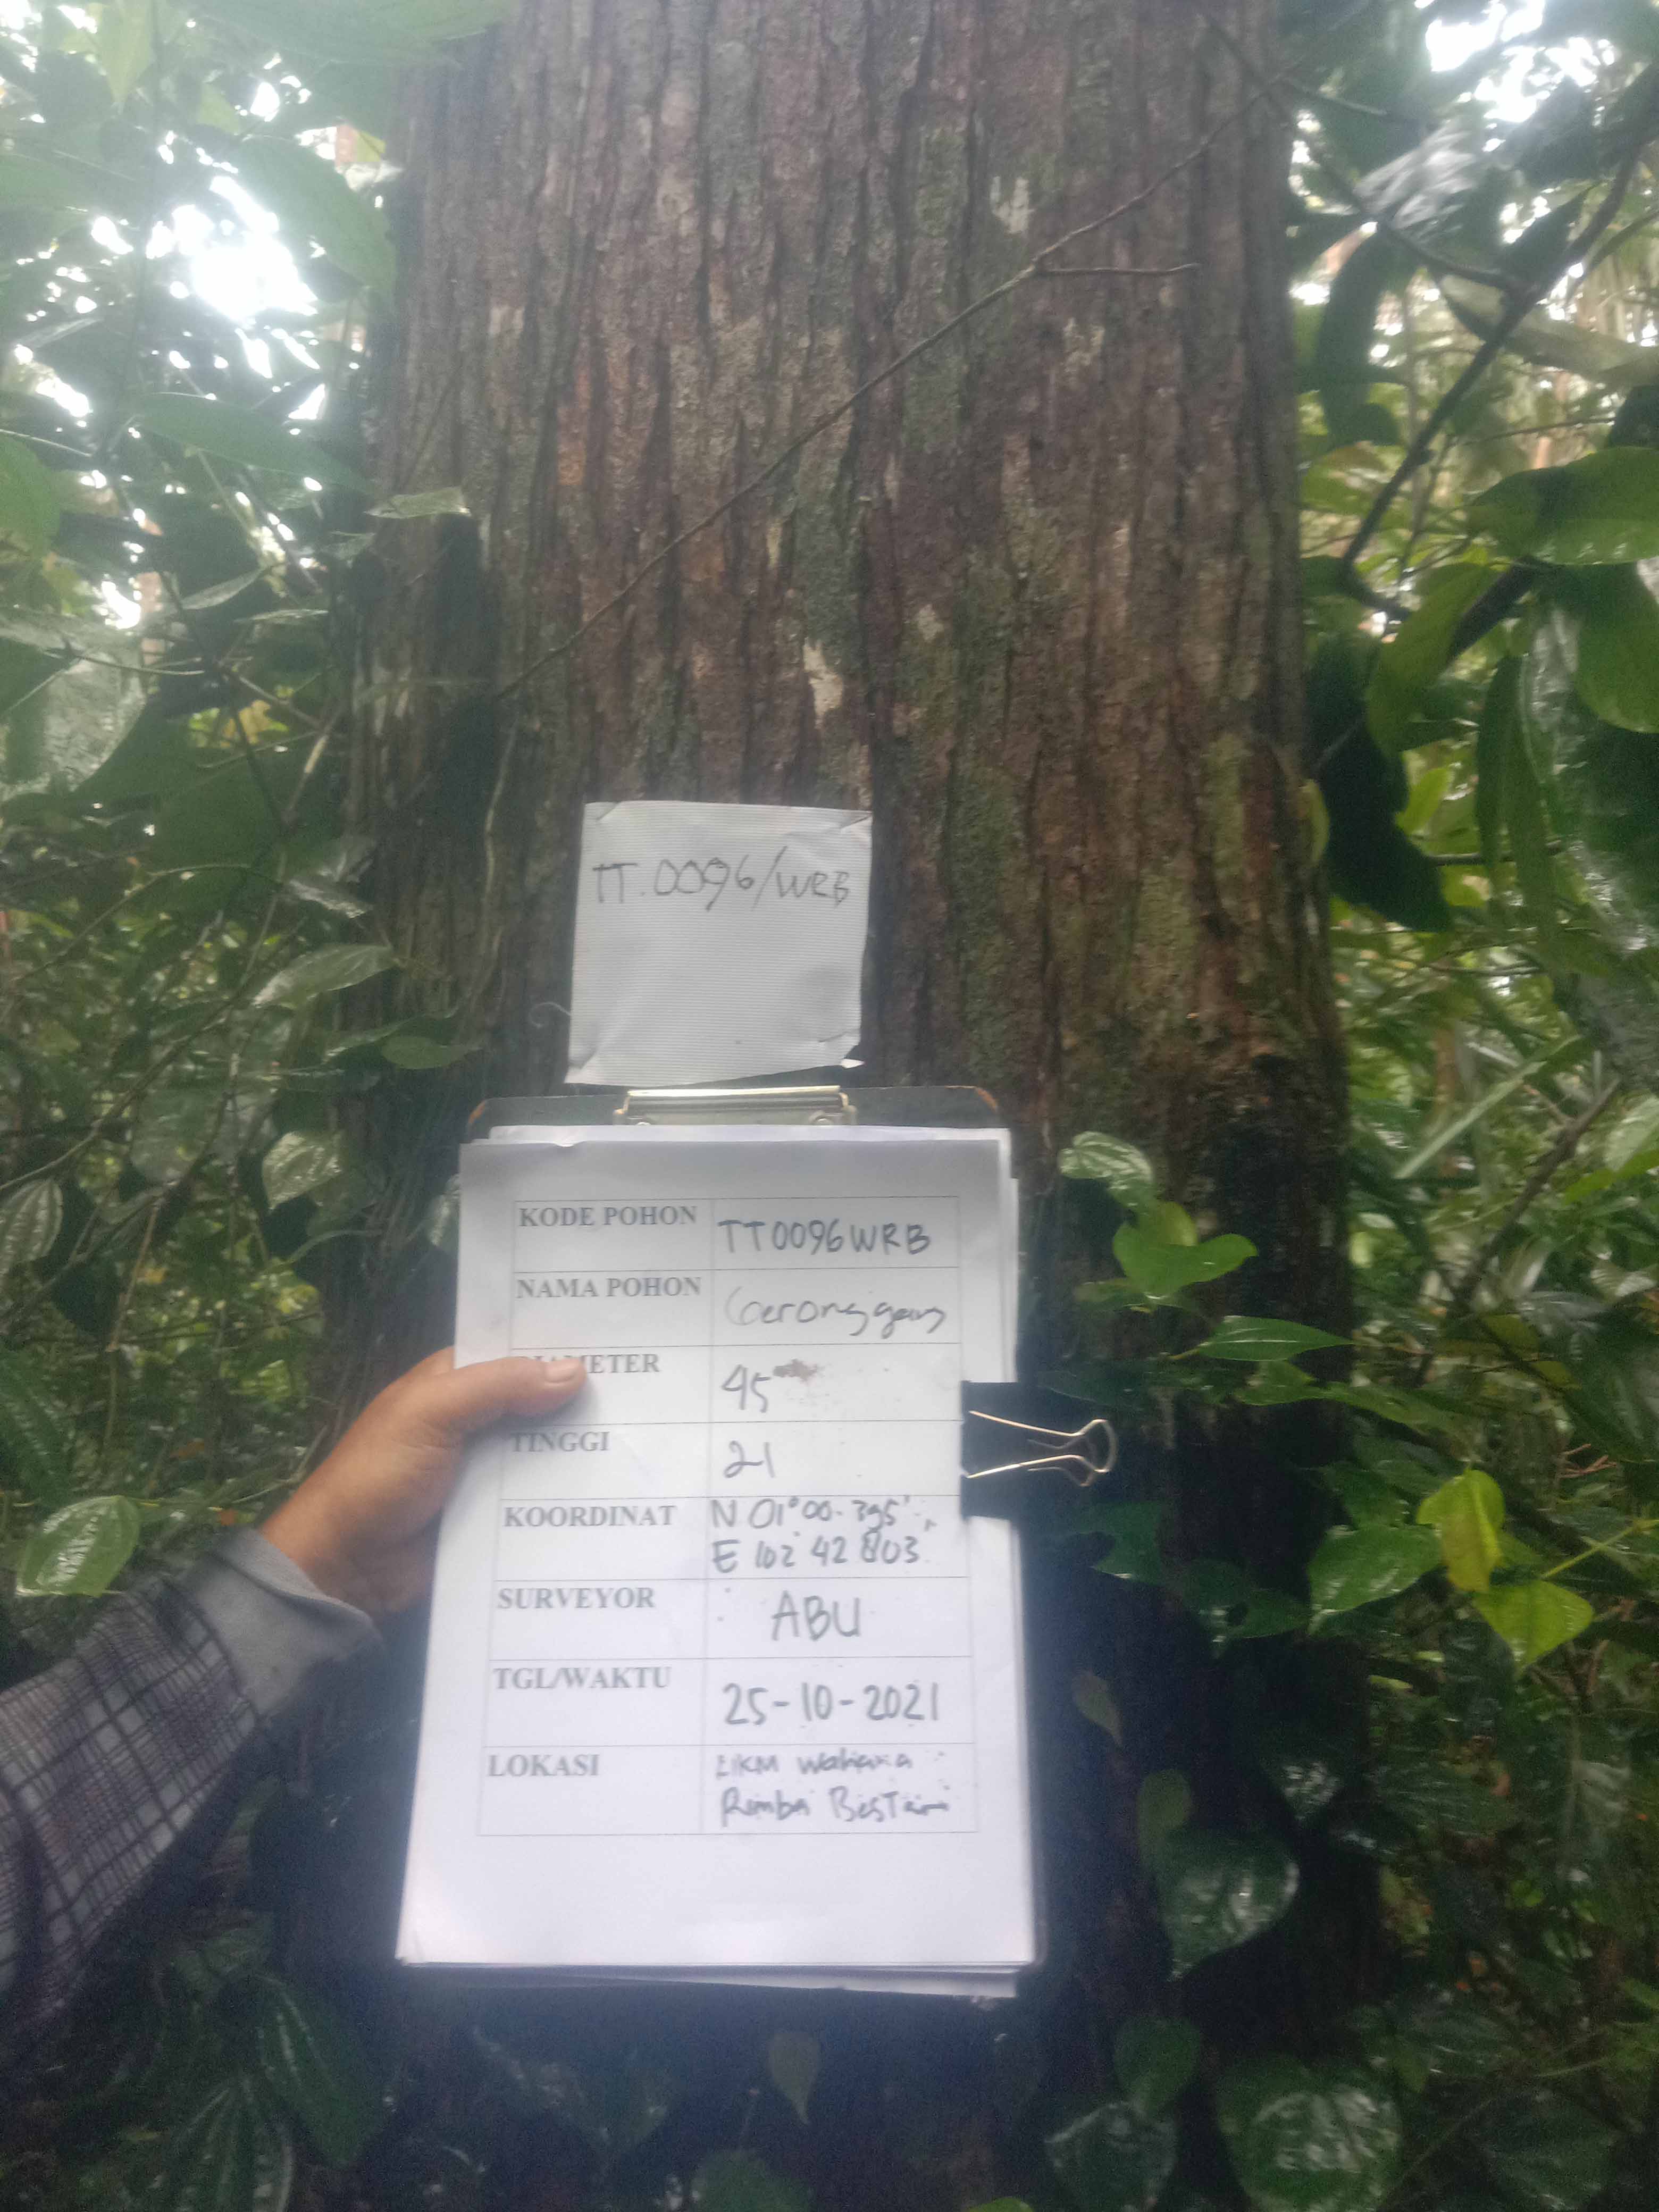 TT.0096/WRB
KODE POHON TT0096WRB
NAMA POHON Geronggang
DIAMETER 45
TINGGI 21
KOORDINAT N 01°00.395'
E 102 42 803
SURVEYOR ABU
TGL/WAKTU 25-10-2021
LOKASI Wahana
Rimba Bestari